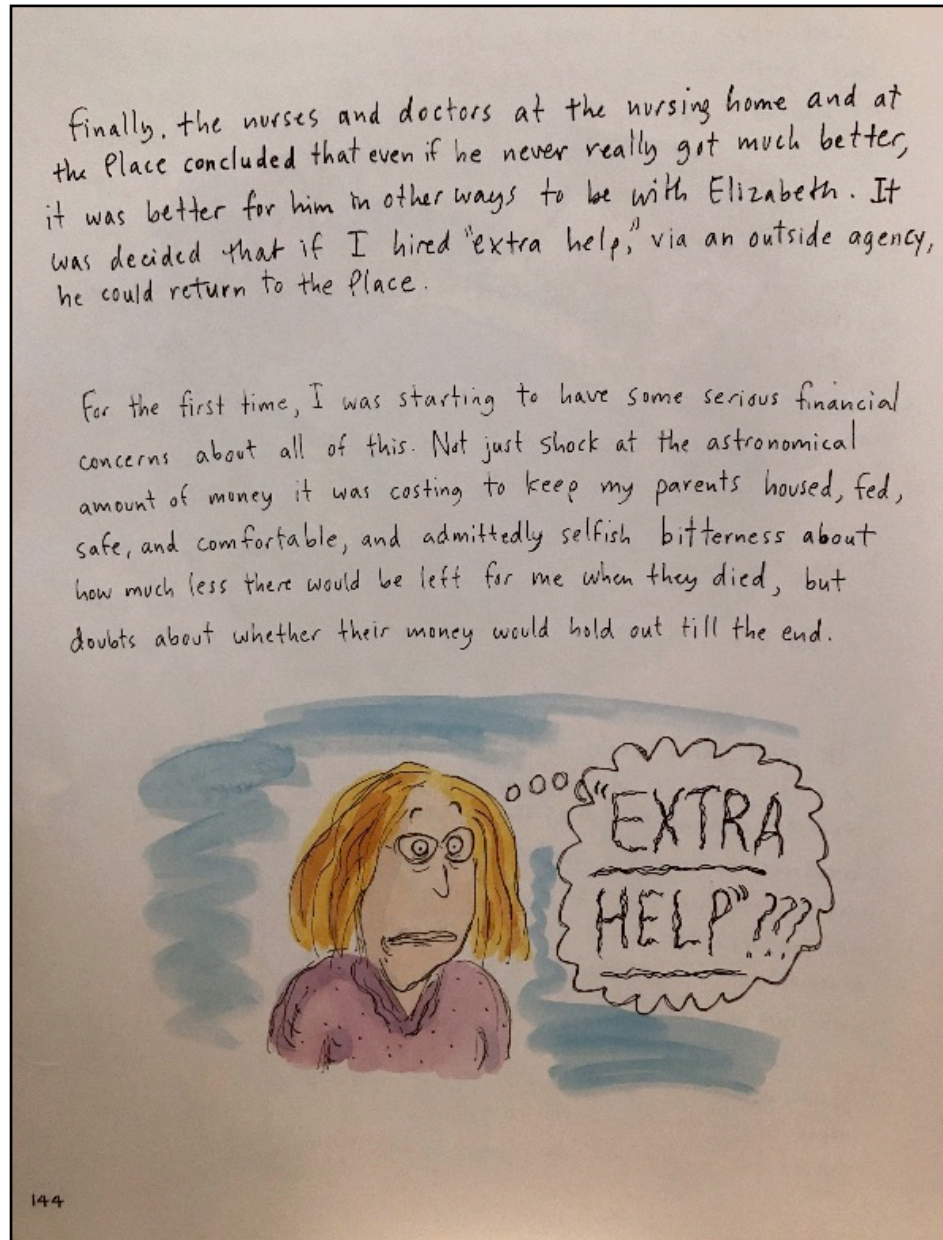 Finally, the nurses and doctors at the nursing home and at
the Place concluded that even if he never really got much better,
it was better for him in other ways to be with Elizabeth. It
was decided that if I hired "extra help," via an outside agency,
he could return to the Place.
For the first time, I was starting to have some serious financial
concerns about all of this. Not just shock at the astronomical
amount of money it was costing to keep my parents housed, fed,
safe, and comfortable, and admittedly selfish bitterness about
how much less there would be left for me when they died, but
doubts about whether their money would hold out till the end.
"EXTRA
HELP"???...
144